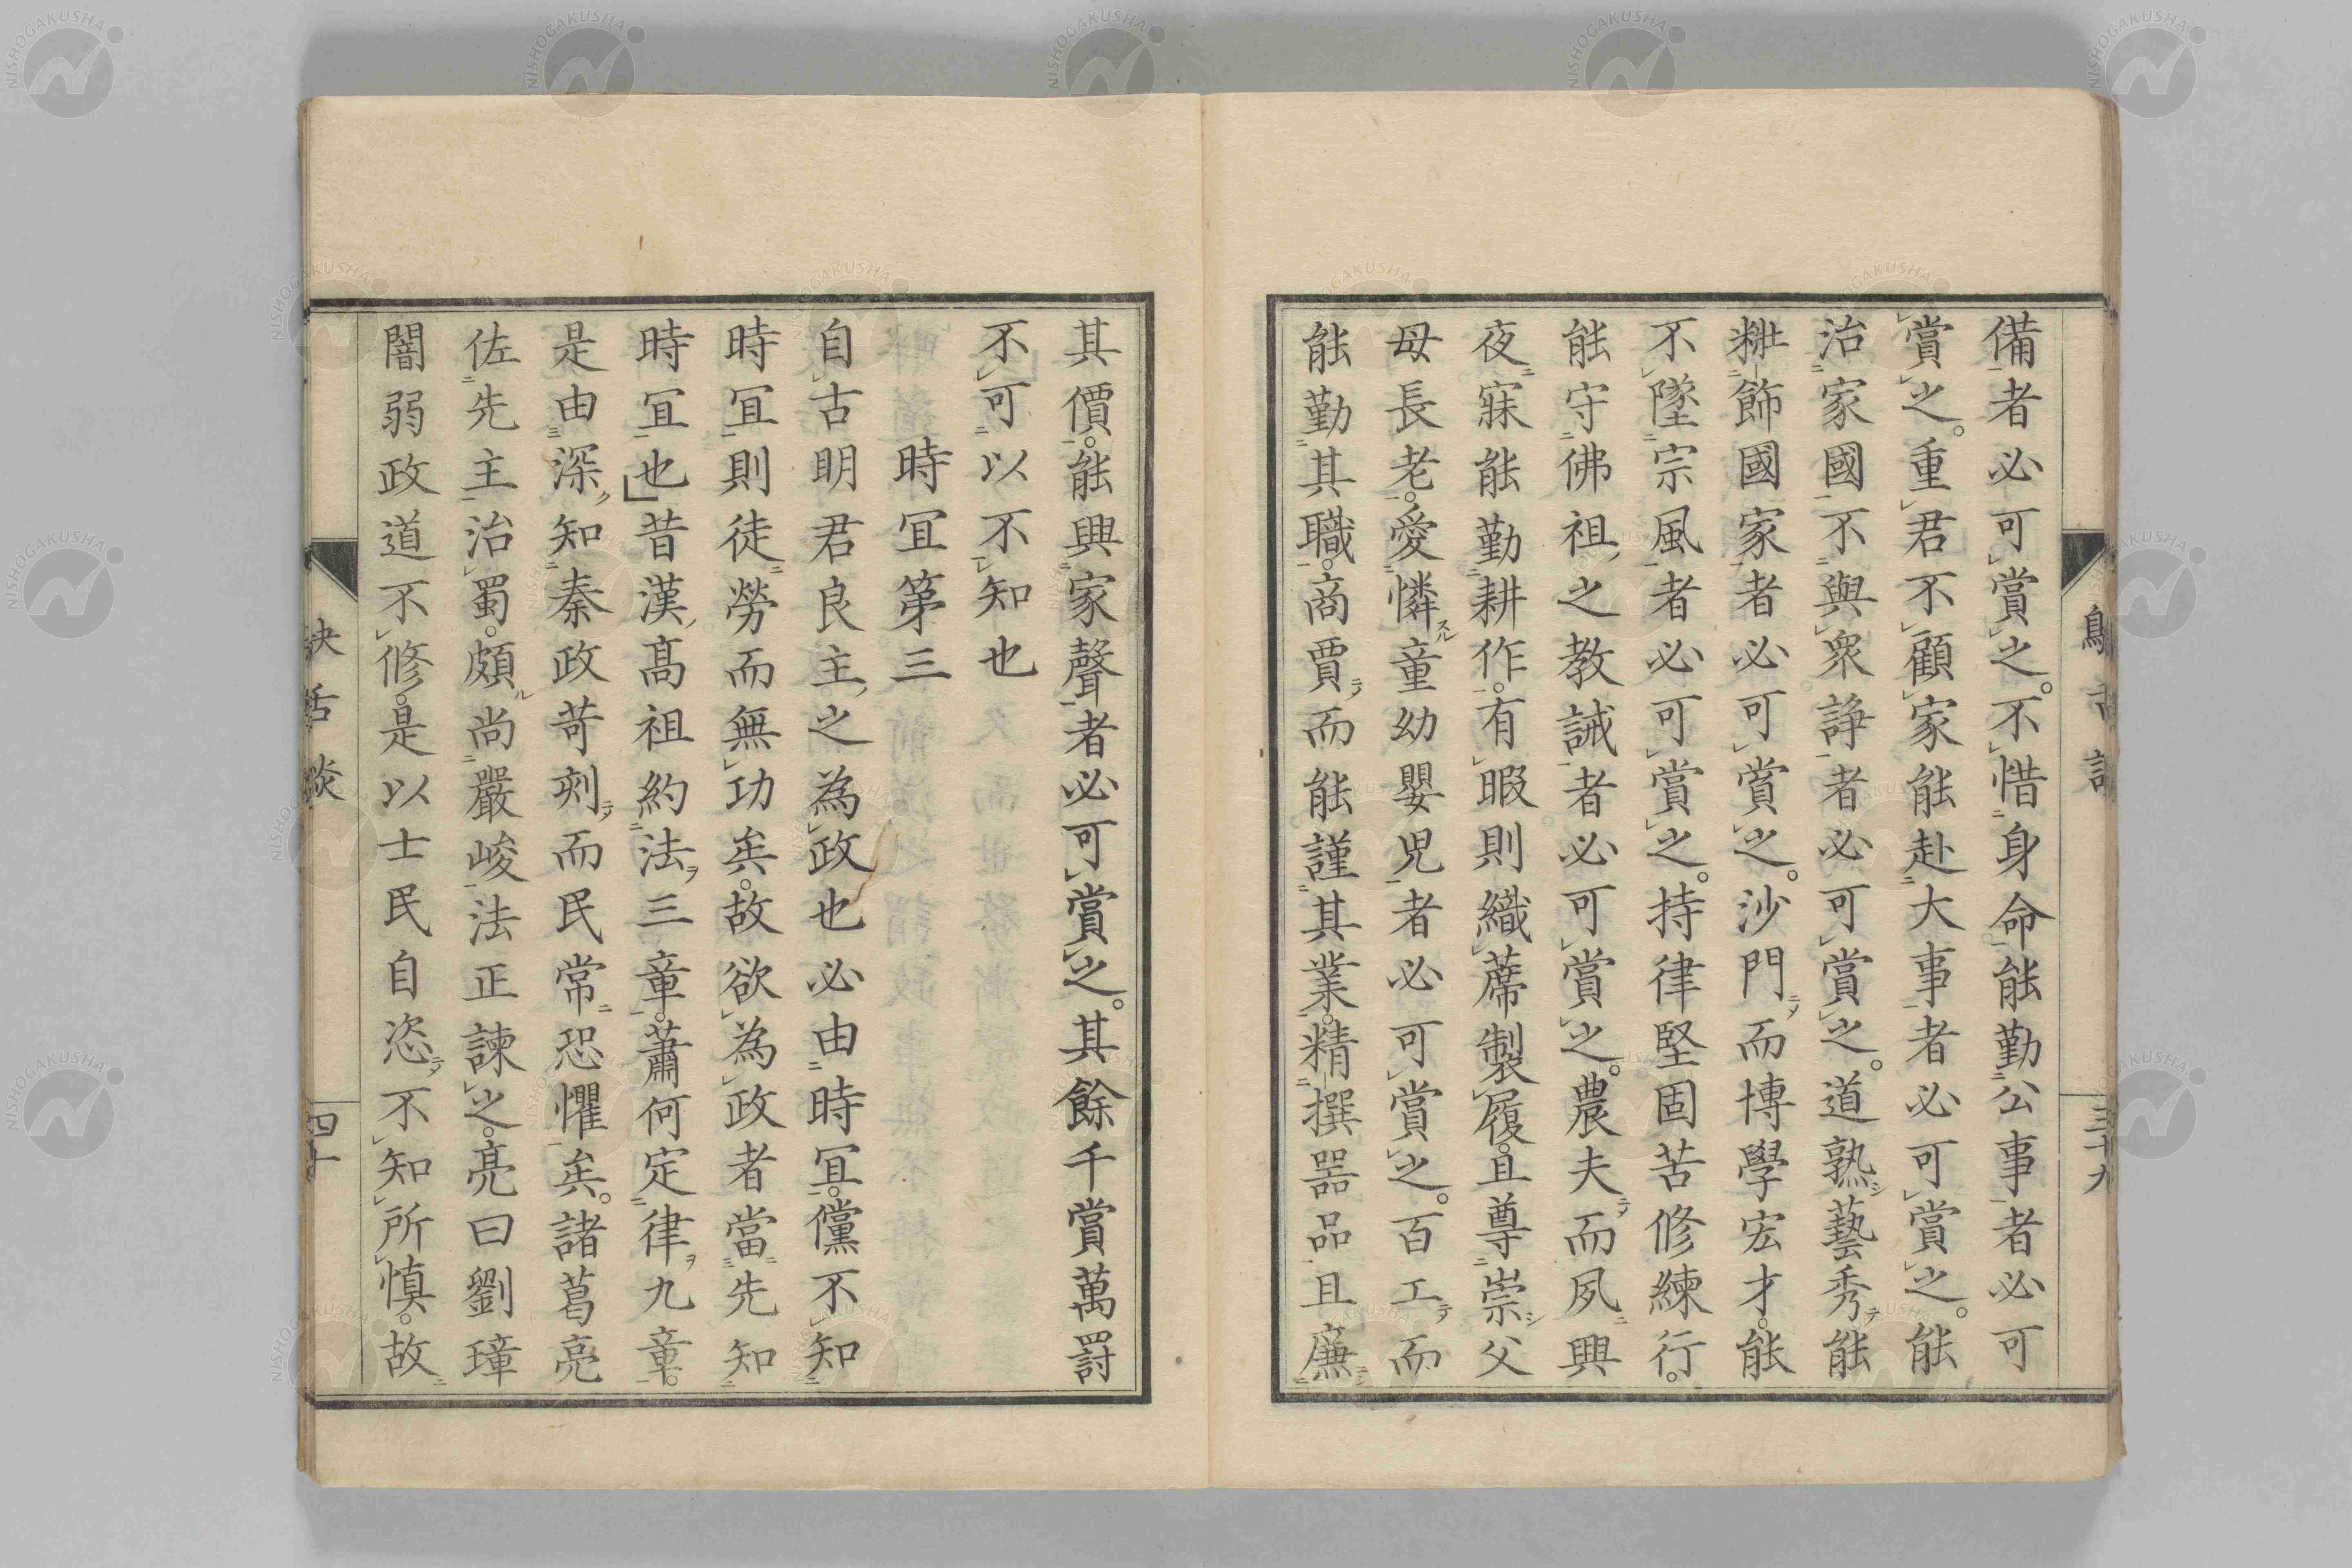 備者必可賞之。不惜身命能勤公事者必可
賞之。重君不顧家能赴大事者必可賞之。能
治家國不與衆諍者必可賞之。道熟藝秀能
粧飾國家者必可賞之。沙門而博學宏才。能
不墜宗風者必可賞之。持律堅固苦修練行。
能守佛祖之教誡者必可賞之。農夫而夙興
夜寐能勤耕作。有暇則織蓆製履。且尊崇父
母長老。愛憐童幼嬰児者必可賞之。百工而
能勤其職。商賈而能謹其業。精撰器品且廉
三十九
其價。能興家聲者必可賞之。其餘千賞萬罰
不可以不知也
時冝第三
自古明君良主之為政也必由時冝。儻不知
時冝則徒勞而無功矣。故欲為政者當先知
時冝也」昔漢高祖約法三章。蕭何定律九章。
是由深知秦政苛刻而民常恐懼矣。諸葛亮
佐先主治蜀。頗尚嚴峻法正諫之。亮曰劉璋
闇弱政道不修。是以士民自恣不知所慎。故
舌
四十